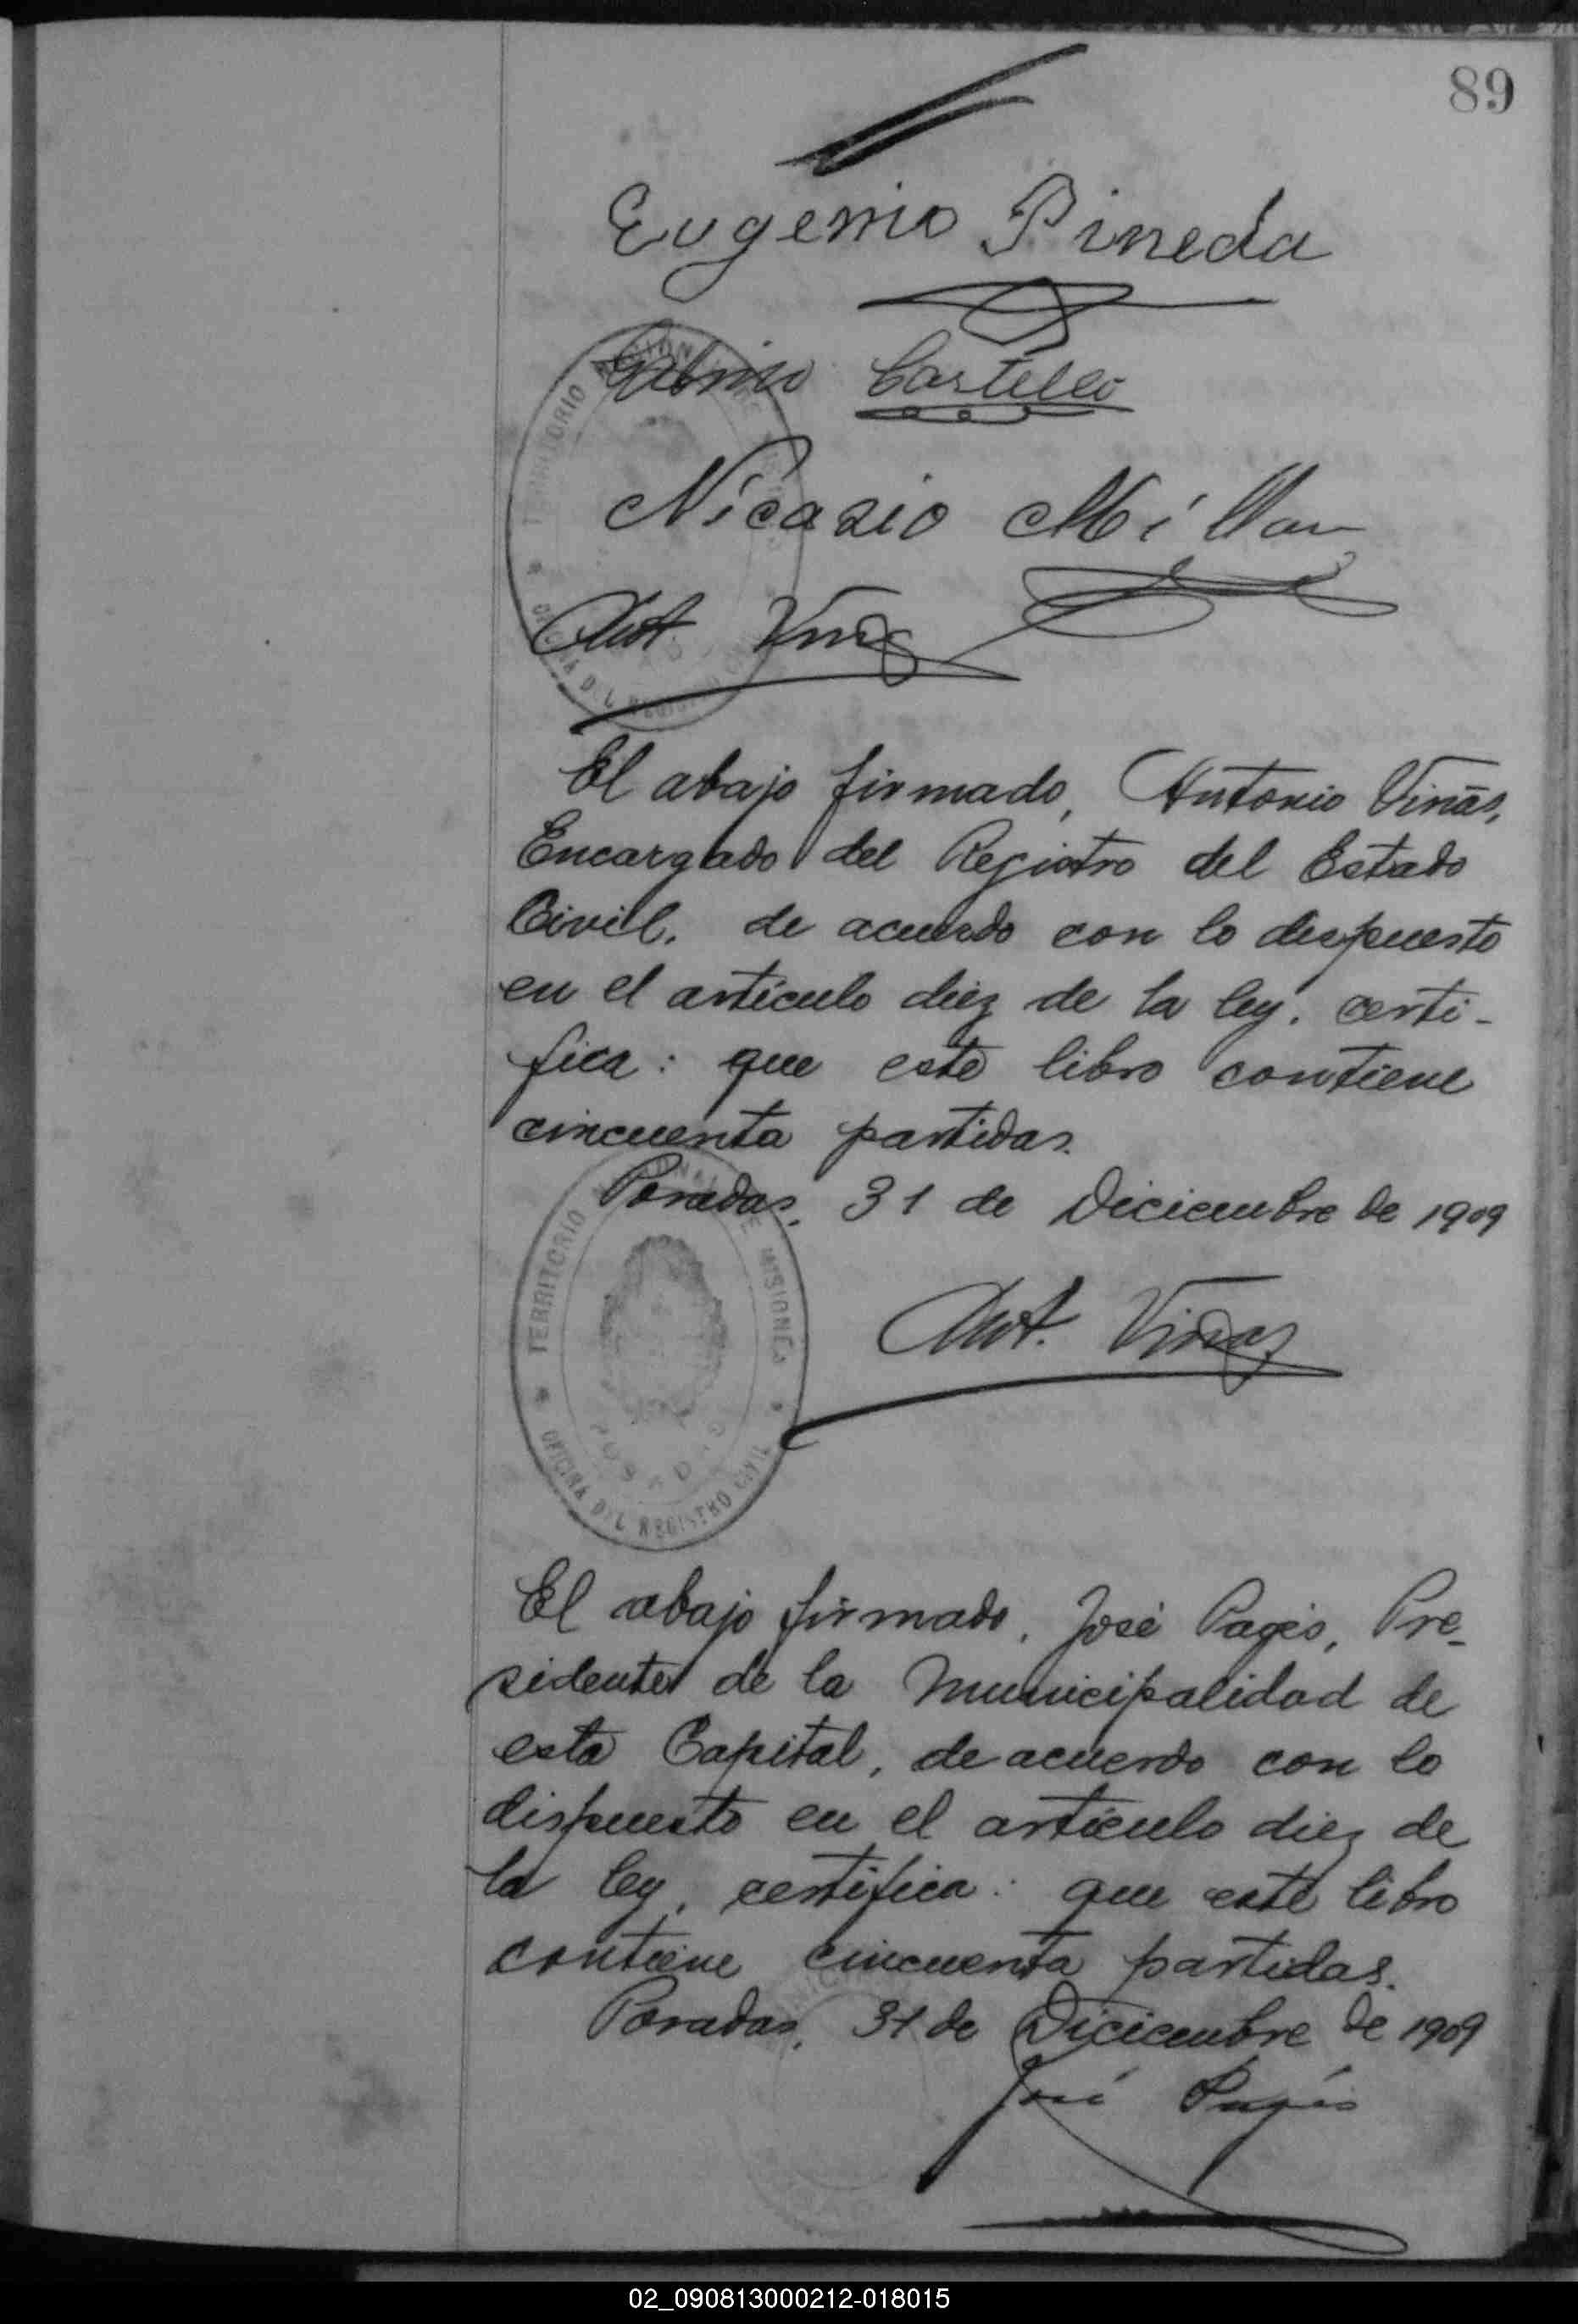 89
Eugenio Pineda
Castillo
Nicasio Millan
Ant. Viñas
El abajo firmado, Antonio Viñas,
Encargado del Registro del Estado
Civil, de acuerdo con lo dispuesto
en el artículo diez de la ley, certi-
fica: que este libro contiene
cincuenta partidas.
Posadas, 31 de Diciembre de 1909
TERRITORIO NACIONAL DE MISIONES
POSADAS
OFICINA DEL REGISTRO CIVIL
Ant. Viñas
El abajo firmado, José Pagés, Pre-
sidente de la Municipalidad de
esta Capital, de acuerdo con lo
dispuesto en el artículo diez de
la ley, certifica: que este libro
contiene cincuenta partidas.
Posadas, 31 de Diciembre de 1909
José Pagés
02_090813000212-018015